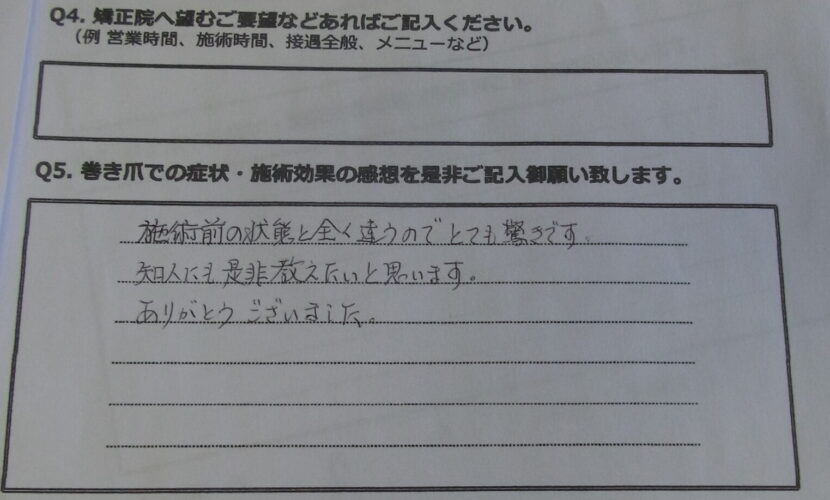 Q4. 矯正院へ望むご要望などあればご記入ください。
（例 営業時間、施術時間、接遇全般、メニューなど）
Q5. 巻き爪での症状・施術効果の感想を是非ご記入御願い致します。
施術前の状態と全く違うのでとても驚きです。
知人にも是非教えたいと思います。
ありがとうございました。